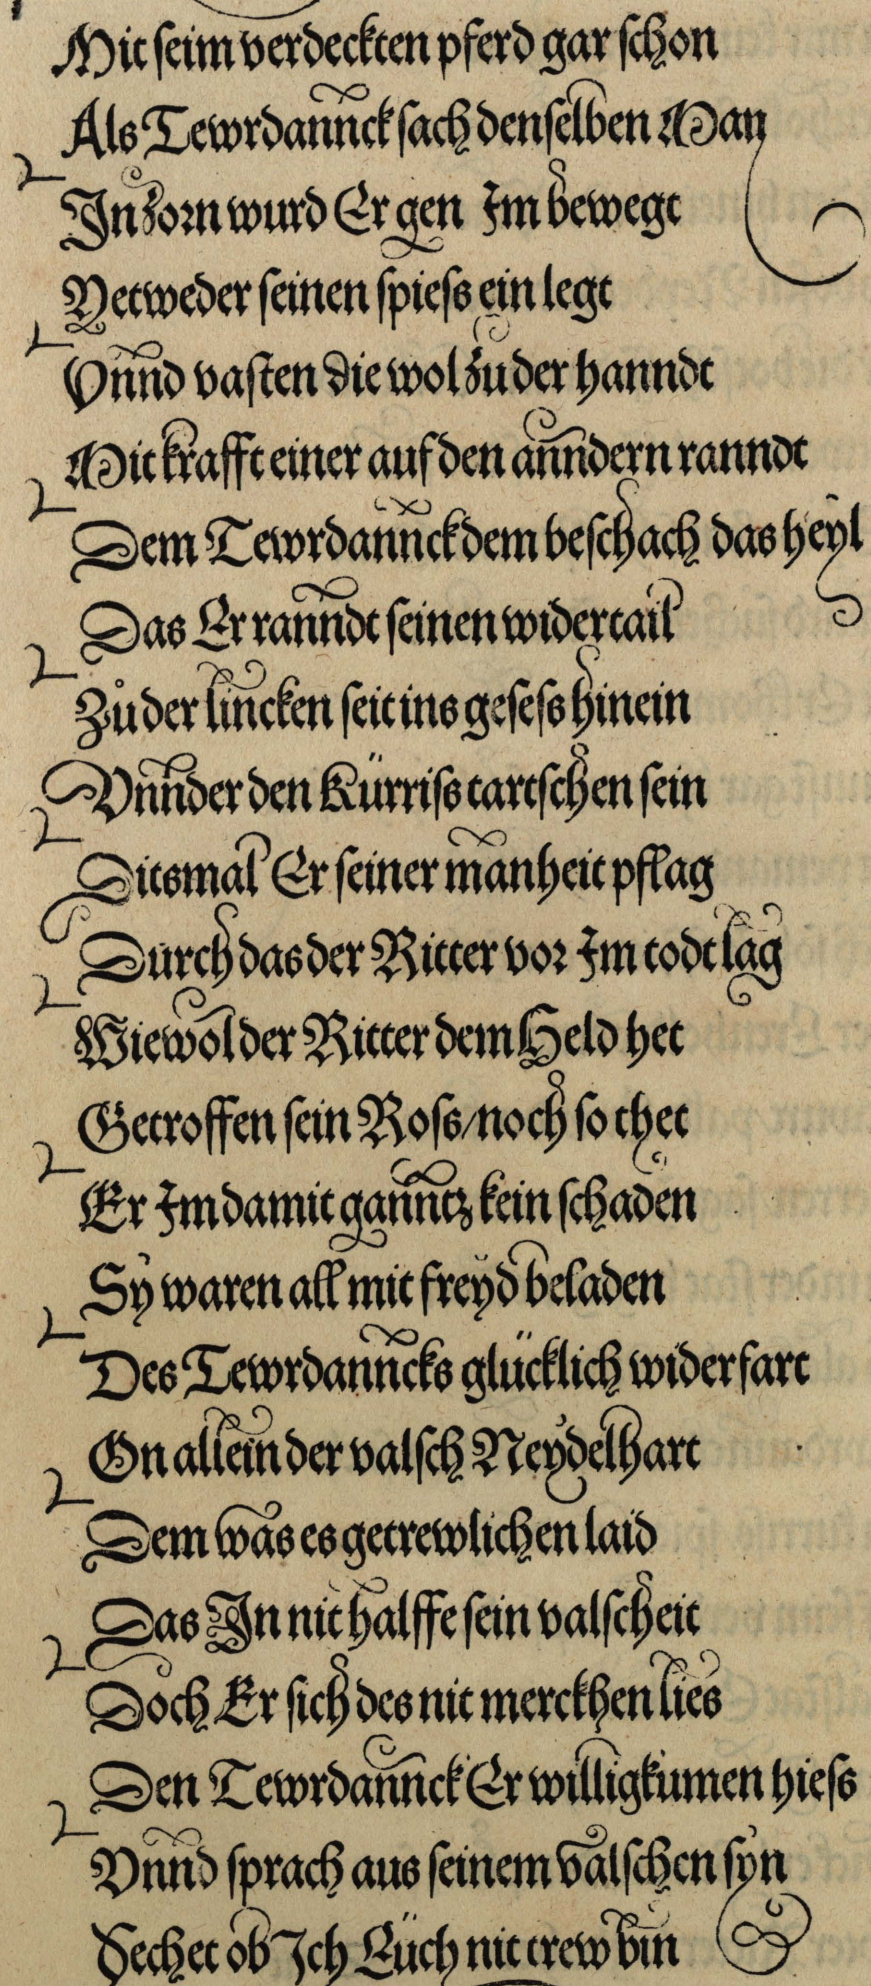 Mit seim verdeckten pferd gar schon
Als Tewrdannck sach denselben Man
In zorn wurd Er gen Im bewegt
Yetweder seinen spiess ein legt
Vnnd vasten die wol zu der hanndt
Mit krafft einer auf den anndern ranndt
Dem Tewrdannck dem beschach das heyl
Das Er ranndt seinen widertail
Zů der lincken seit ins gesess hinein
Vnnder den Kürriss tartschen sein
Ditsmal Er seiner manheit pflag
Durch das der Ritter vor Im todt lag
Wiewol der Ritter dem Held het
Getroffen sein Ross/noch so thet
Er Im damit ganntz kein schaden
Sy waren all mit freyd beladen
Des Tewrdanncks glücklich widerfart
On allein der valsch Neydelhart
Dem was es getrewlichen laid
Das In nit halffe sein valscheit
Doch Er sich des nit merckhen lies
Den Tewrdannck Er willig kumen hiess
Vnnd sprach aus seinem valschen syn
Sechet ob Ich Eüch nit trew bin